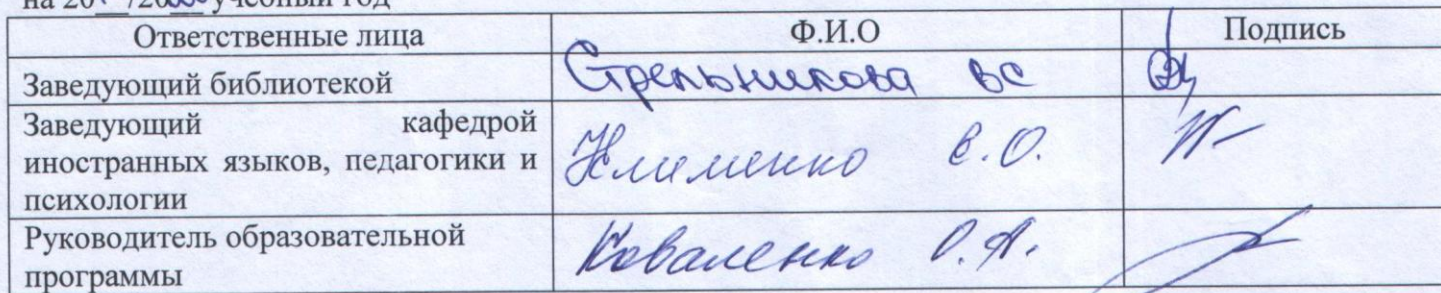 учебный год
Ответственные лица Ф.И.О Подпись
Заведующий библиотекой Стрельникова ВС
Заведующий кафедрой
иностранных языков, педагогики и
психологии
Клименко Е.О.
Руководитель образовательной
программы
Коваленко О.А.